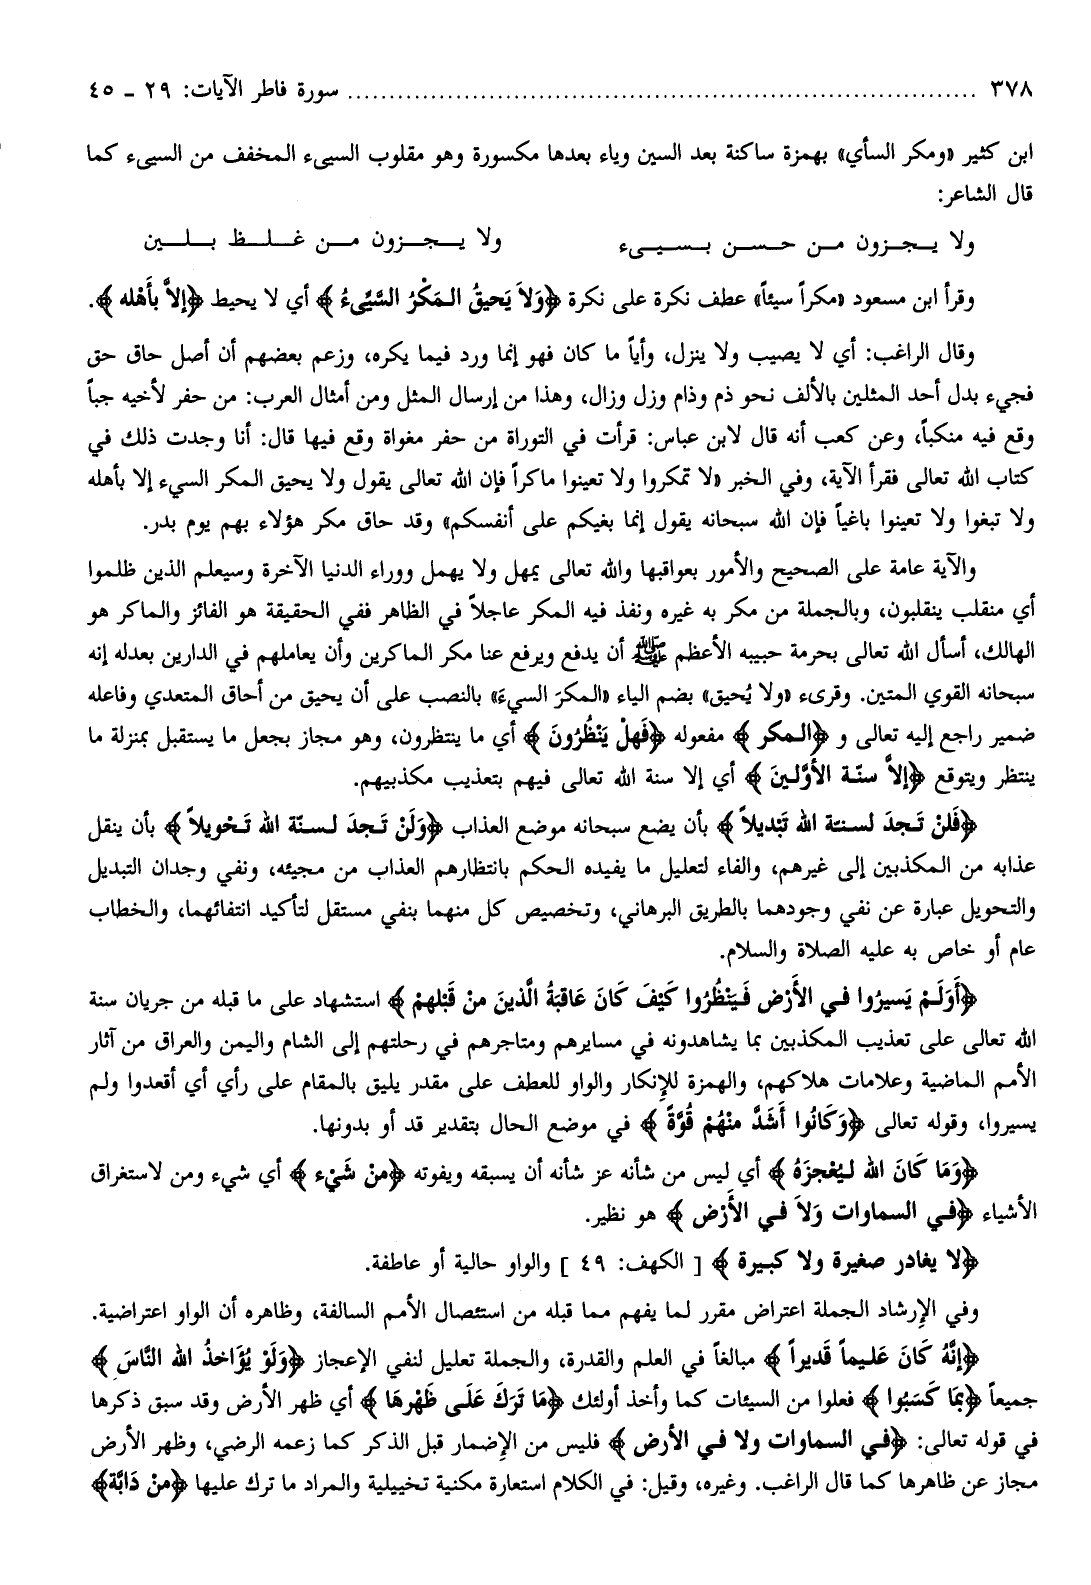 ٣٧٨ ........................................................ سورة فاطر الآيات: ٢٩ ـ ٤٥
ابن كثير «ومكر السأي» بهمزة ساكنة بعد السين وياء بعدها مكسورة وهو مقلوب السيىء المخفف من السيىء كما
قال الشاعر:
ولا يـجـزون مـن حـسـن بـسـيـىء ولا يـجـزون مـن غـلـظ بـلـيـن
وقرأ ابن مسعود «مكراً سيئاً» عطف نكرة على نكرة ﴿وَلاَ يَحيقُ المَكْرُ السَّيِّىءُ﴾ أي لا يحيط ﴿إلاَّ بأَهْله﴾.
وقال الراغب: أي لا يصيب ولا ينزل، وأياً ما كان فهو إنما ورد فيما يكره، وزعم بعضهم أن أصل حاق حق
فجيء بدل أحد المثلين بالألف نحو ذم وذام وزل وزال، وهذا من إرسال المثل ومن أمثال العرب: من حفر لأخيه جباً
وقع فيه منكباً، وعن كعب أنه قال لابن عباس: قرأت في التوراة من حفر مغواة وقع فيها قال: أنا وجدت ذلك في
كتاب الله تعالى فقرأ الآية، وفي الخبر «لا تمكروا ولا تعينوا ماكراً فإن الله تعالى يقول ولا يحيق المكر السيء إلا بأهله
ولا تبغوا ولا تعينوا باغياً فإن الله سبحانه يقول إنما بغيكم على أنفسكم» وقد حاق مكر هؤلاء بهم يوم بدر.
والآية عامة على الصحيح والأمور بعواقبها والله تعالى يمهل ولا يهمل ووراء الدنيا الآخرة وسيعلم الذين ظلموا
أي منقلب ينقلبون، وبالجملة من مكر به غيره ونفذ فيه المكر عاجلاً في الظاهر ففي الحقيقة هو الفائز والماكر هو
الهالك، أسأل الله تعالى بحرمة حبيبه الأعظم ﷺ أن يدفع ويرفع عنا مكر الماكرين وأن يعاملهم في الدارين بعدله إنه
سبحانه القوي المتين. وقرىء «ولا يُحيق» بضم الياء «المكرَ السيءَ» بالنصب على أن يحيق من أحاق المتعدي وفاعله
ضمير راجع إليه تعالى و ﴿المكر﴾ مفعوله ﴿فَهلْ يَنْظُرُونَ﴾ أي ما ينتظرون، وهو مجاز بجعل ما يستقبل بمنزلة ما
ينتظر ويتوقع ﴿إلاَّ سنّة الأوَّلينَ﴾ أي إلا سنة الله تعالى فيهم بتعذيب مكذبيهم.
﴿فَلنْ تَجدَ لسنتة الله تَبْديلاً﴾ بأن يضع سبحانه موضع العذاب ﴿وَلَنْ تَجدَ لسنّة الله تَحْويلاً﴾ بأن ينقل
عذابه من المكذبين إلى غيرهم، والفاء لتعليل ما يفيده الحكم بانتظارهم العذاب من مجيئه، ونفي وجدان التبديل
والتحويل عبارة عن نفي وجودهما بالطريق البرهاني، وتخصيص كل منهما بنفي مستقل لتأكيد انتفائهما، والخطاب
عام أو خاص به عليه الصلاة والسلام.
﴿أَوَلَمْ يَسيرُوا في الأَرْض فَيَنْظُرُوا كَيْفَ كَانَ عَاقبَةُ الَّذينَ منْ قَبْلهمْ﴾ استشهاد على ما قبله من جريان سنة
الله تعالى على تعذيب المكذبين بما يشاهدونه في مسايرهم ومتاجرهم في رحلتهم إلى الشام واليمن والعراق من آثار
الأمم الماضية وعلامات هلاكهم، والهمزة للإنكار والواو للعطف على مقدر يليق بالمقام على رأي أي أقعدوا ولم
يسيروا، وقوله تعالى ﴿وَكَانُوا أَشَدَّ منْهُمْ قُوَّةً﴾ في موضع الحال بتقدير قد أو بدونها.
﴿وَمَا كَانَ الله ليُعْجزَهُ﴾ أي ليس من شأنه عز شأنه أن يسبقه ويفوته ﴿منْ شَيْء﴾ أي شيء ومن لاستغراق
الأشياء ﴿في السماوات وَلاَ في الأَرْض﴾ هو نظير.
﴿لا يغادر صغيرة ولا كبيرة﴾ [ الكهف: ٤٩ ] والواو حالية أو عاطفة.
وفي الإرشاد الجملة اعتراض مقرر لما يفهم مما قبله من استئصال الأمم السالفة، وظاهره أن الواو اعتراضية.
﴿إنَّهُ كَانَ عَليماً قَديراً﴾ مبالغاً في العلم والقدرة، والجملة تعليل لنفي الإعجاز ﴿وَلَوْ يُؤَاخذُ الله النَّاسَ﴾
جميعاً ﴿بمَا كَسَبُوا﴾ فعلوا من السيئات كما وأخذ أولئك ﴿مَا تَرَكَ عَلَى ظَهْرهَا﴾ أي ظهر الأرض وقد سبق ذكرها
في قوله تعالى: ﴿في السماوات ولا في الأرض﴾ فليس من الإضمار قبل الذكر كما زعمه الرضي، وظهر الأرض
مجاز عن ظاهرها كما قال الراغب. وغيره، وقيل: في الكلام استعارة مكنية تخييلية والمراد ما ترك عليها ﴿منْ دَابَّة﴾